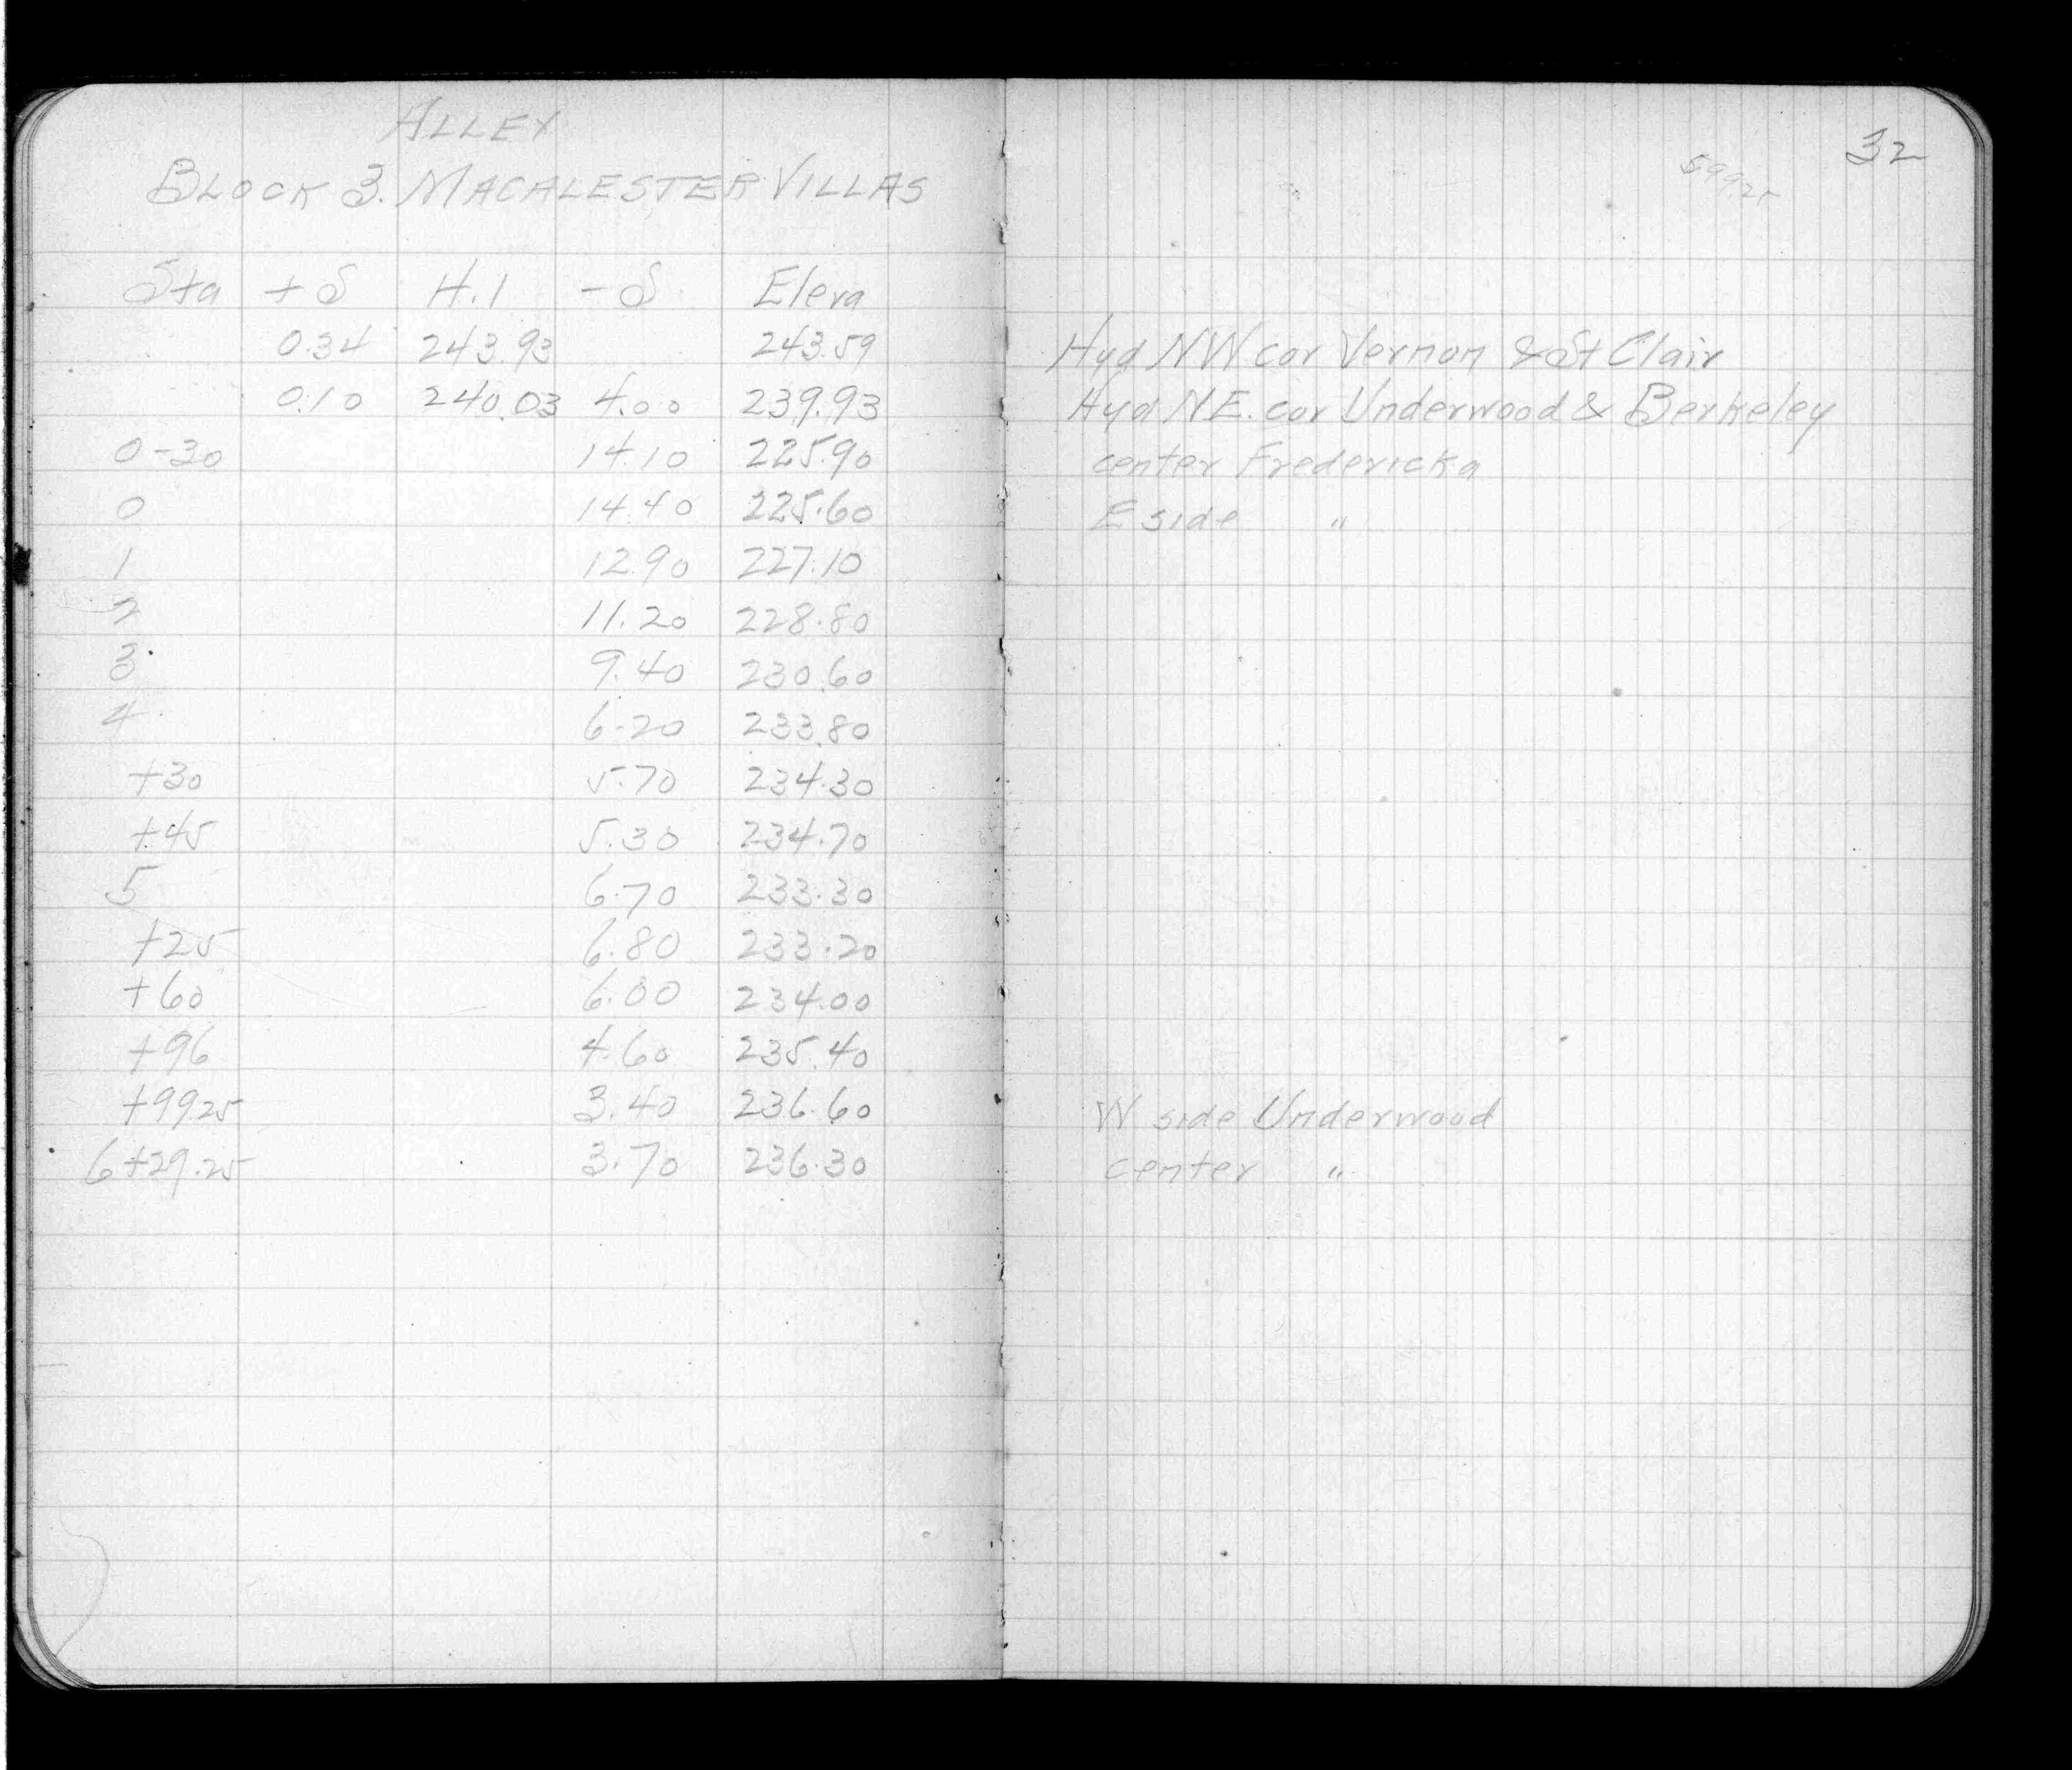 ALLEY
BLOCK 3. MACALESTER VILLAS
Sta +S H.I -S Eleva
0.34 243.93 243.59
0.10 240.03 4.00 239.93
0-30 14.10 225.90
0 14.40 225.60
1 12.90 227.10
2 11.20 228.80
3 9.40 230.60
4 6.20 233.80
+30 5.70 234.30
+45 5.30 234.70
5 6.70 233.30
+25 6.80 233.20
+60 6.00 234.00
+96 4.60 235.40
+99.25 3.40 236.60
6+29.25 3.70 236.30
32
599.25
Hyd NW cor Vernon & St Clair
Hyd N.E. cor Underwood & Berkeley
center Fredericka
E side "
W side Underwood
center "